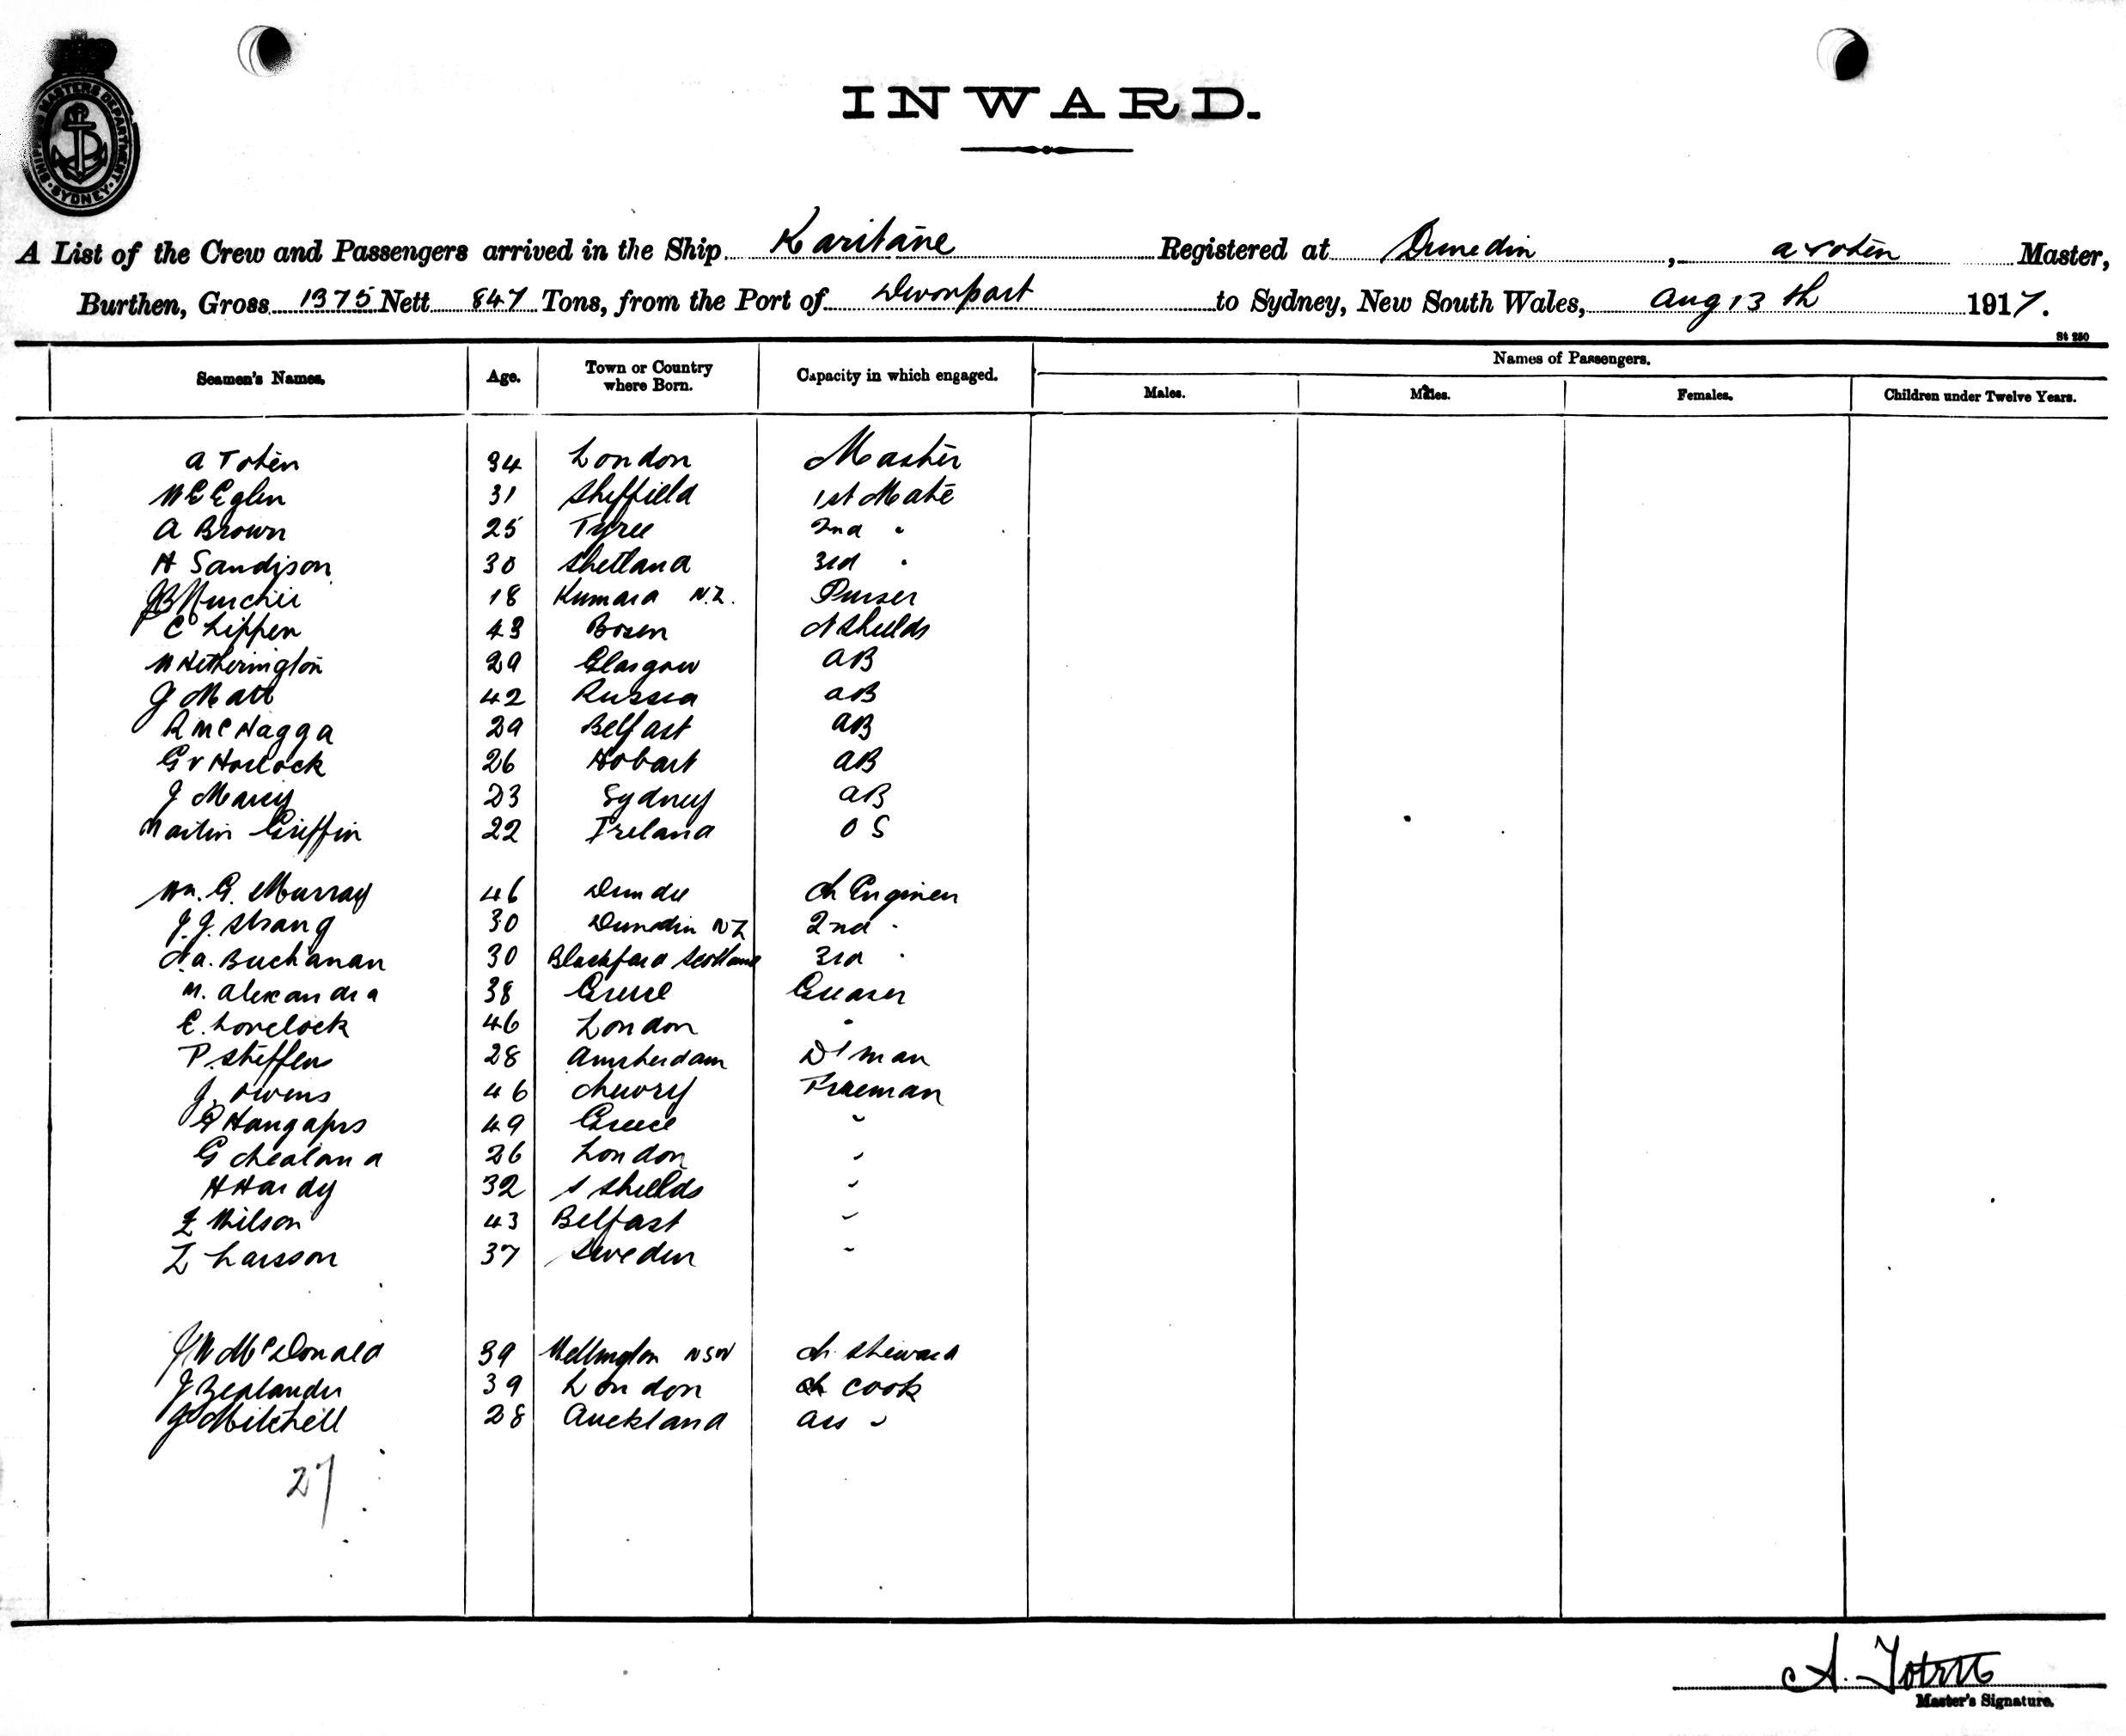 SHIPPING MASTERS DEPARTMENT · SYDNEY ·
INWARD.
A List of the Crew and Passengers arrived in the Ship Karitane Registered at Dunedin, A Toten Master,
Burthen, Gross 1375 Nett 847 Tons, from the Port of Devonport to Sydney, New South Wales, Aug 13th 1917.
St 250
Seamen's Names. Age. Town or Country where Born. Capacity in which engaged. Names of Passengers.
Males. Males. Females. Children under Twelve Years.
A Toten 34 London Master
W E Eglen 31 Sheffield 1st Mate
A Brown 25 Tyree 2nd "
H Sandison 30 Shetland 3rd "
18 Kumara N.Z. Purser
C Lippen 43 Bosen N Shields
W Hetherington 29 Glasgow AB
J Matt 42 Russia AB
R McNagga 29 Belfast AB
G V Horlock 26 Hobart AB
J Marcy 23 Sydney AB
Martin Griffin 22 Ireland O S
Wm. G. Murray 46 Dundee Ch Engineer
J. J. Strang 30 Dunedin NZ 2nd "
N. A. Buchanan 30 Blackford Scotland 3rd "
M. Alexandra 38 Greece Greaser
E. Lovelock 46 London "
P. Steffens 28 Amsterdam D'man
J. Owens 46 Newry Fireman
49 Greece "
G Nealand 26 London "
H Hardy 32 S Shields "
Wilson 43 Belfast "
Z Larsson 37 Sweden "
J W McDonald 39 Wellington NSW Ch Steward
J Zealander 39 London Ch Cook
J Mitchell 28 Auckland Ass "
27
A. Toten
Master's Signature.